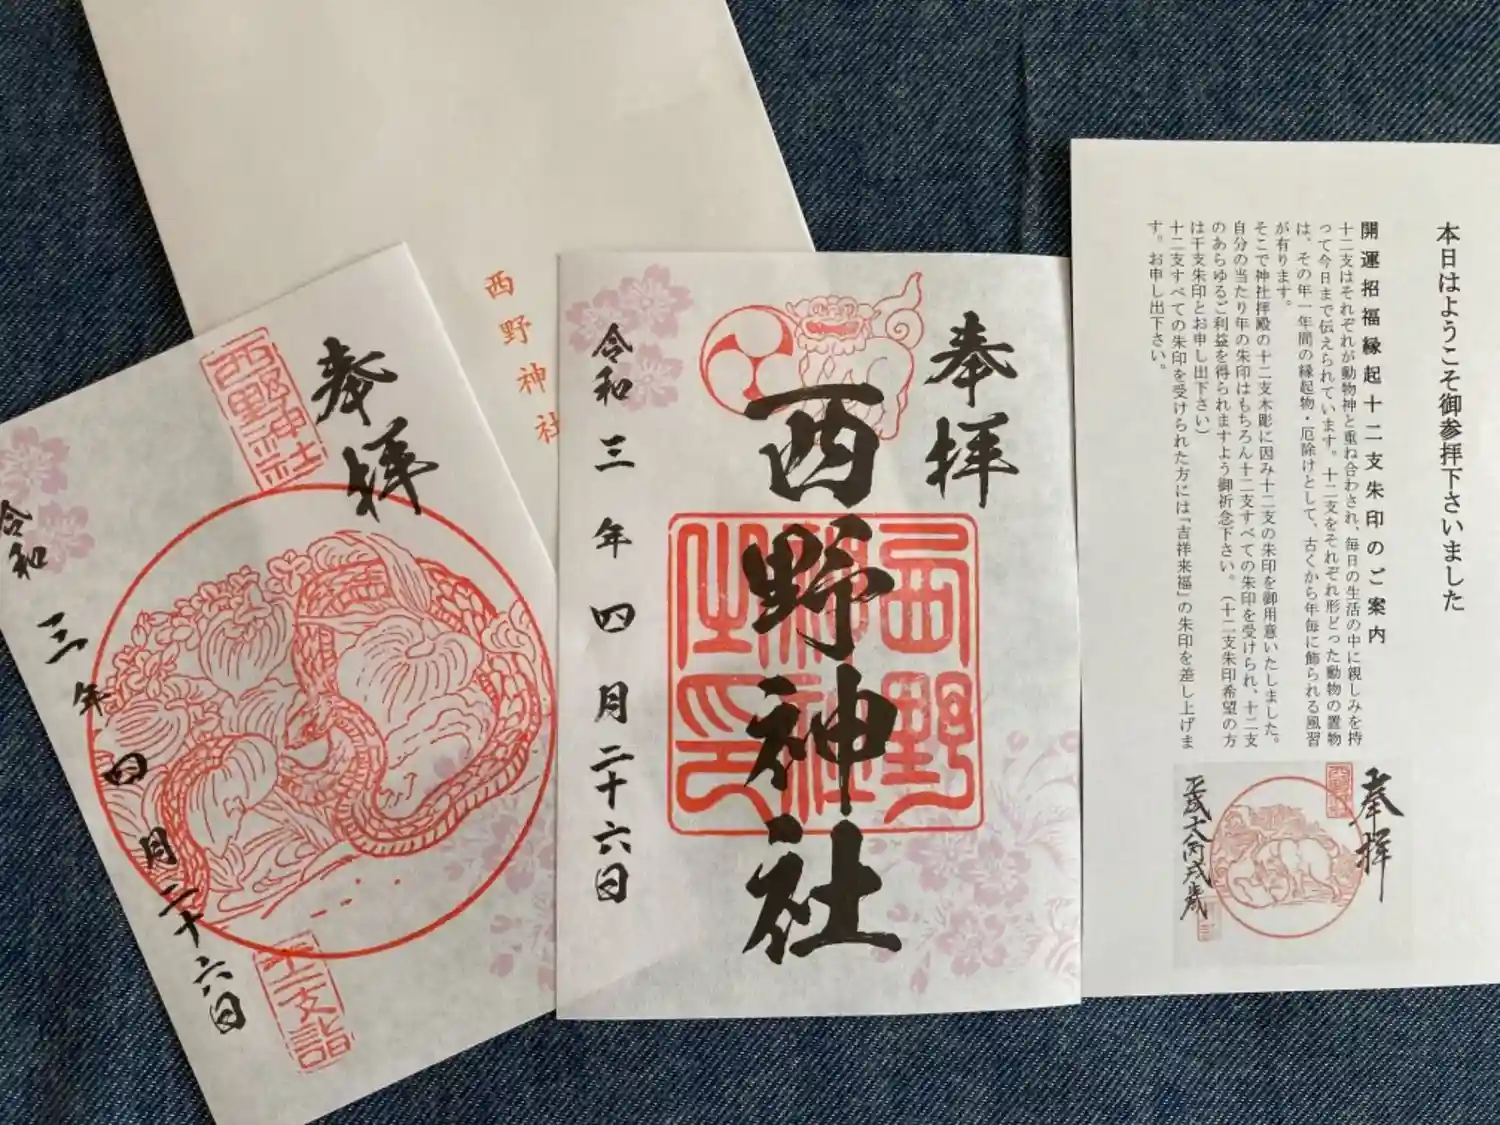 本日はようこそ御参拝下さいました
開運招福縁起十二支朱印のご案内
十二支はそれぞれが動物神と重ね合わされ、毎日の生活の中に親しみを持
って今日まで伝えられています。十二支をそれぞれ形どった動物の置物
は、その年一年間の縁起物・厄除けとして、古くから年毎に飾られる風習
が有ります。
そこで神社拝殿の十二支木彫に因み十二支の朱印を御用意いたしました。
自分の当たり年の朱印はもちろん十二支すべての朱印を受けられ、十二支
のあらゆるご利益を得られますよう御祈念下さい。（十二支朱印希望の方
は干支朱印とお申し出下さい）
十二支すべての朱印を受けられた方には「吉祥来福」の朱印を差し上げま
す。お申し出下さい。
奉拝
西野神社
平成
丙戌歳
奉拝
西野神社
西野
神社
之印
令和三年四月二十六日
西野神社
奉拝
西野神社
令和三年四月二十六日
十二支詣